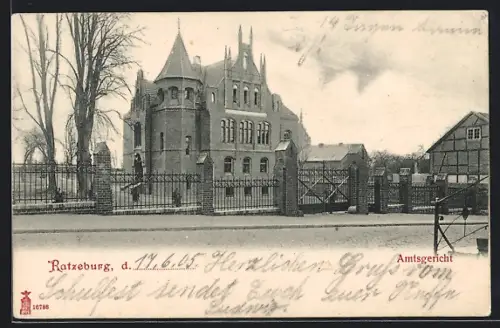 Ratzeburg, d. 17.6.05 Herzlichen Gruß vom
Amtsgericht
Schulfest sendet Euch Euer Neffe
Ludwig.
10786